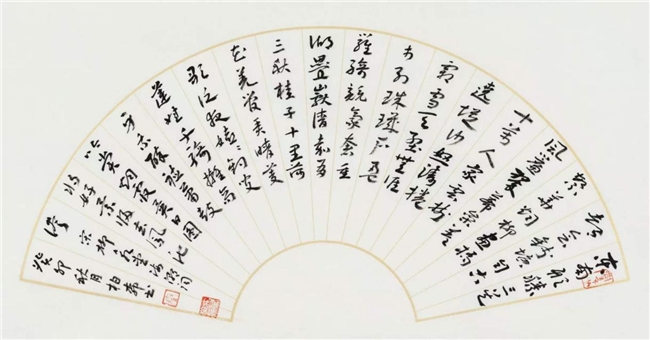 東南形勝三吴
都會錢塘自古
繁華烟柳畫橋
風簾翠幕參差
十萬人家雲樹
遶堤沙怒濤捲
霜雪天塹無涯
市列珠璣户盈
羅綺競豪奢重
湖疊巘清嘉有
三秋桂子十里荷
花羌管弄晴菱
歌泛夜嬉嬉釣叟
蓮娃千騎擁高
牙乘醉聽簫鼓
吟賞烟霞異日圖
將好景歸去鳳池
夸 宋柳永望海潮詞
癸卯秋月柏書